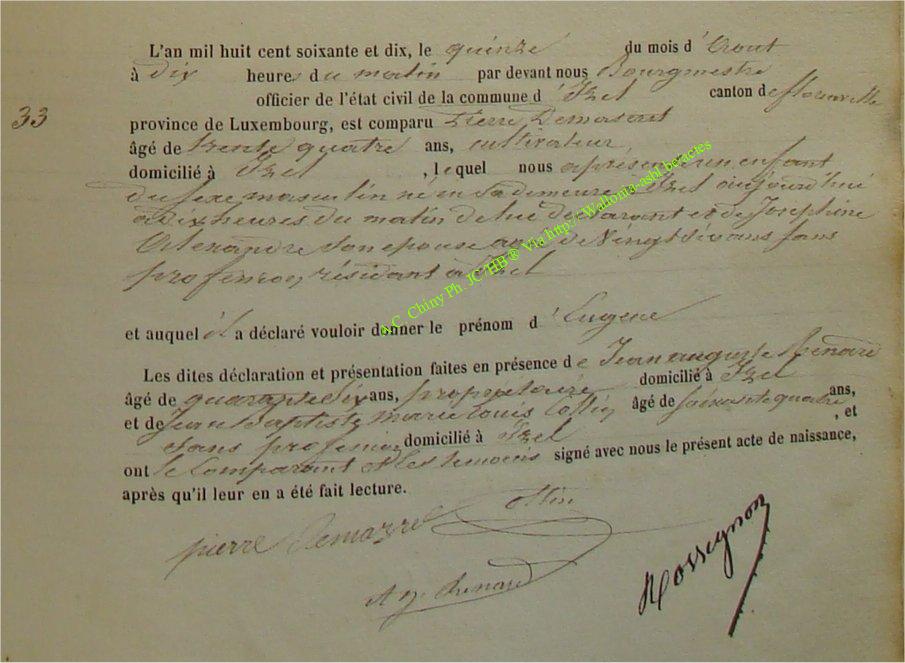 L'an mil huit cent soixante et dix, le quinze du mois d'Aout
à dix heures du matin par devant nous Bourgmestre
officier de l'état civil de la commune d'Izel canton de florenville
33
province de Luxembourg, est comparu Pierre
âgé de trente quatre ans, cultivateur
domicilié à Izel, lequel nous a présenté un enfant
du sexe masculin né en sa demeure à Izel aujourd'hui
à dix heures du matin de lui déclarant et de Josephine
Alexandre son epouse agée de Vingt six ans sans
profession, résidant à Izel
A.C. Chiny Ph. JC/HB ® Via http://Wallonia-asbl.be/actes
et auquel il a déclaré vouloir donner le prénom d'Eugene
Les dites déclaration et présentation faites en présence de Jean auguste Renard
âgé de quarante six ans, propriétaire domicilié à Izel
et de Jean Baptiste marie Louis Collin âgé de soixante quatre ans,
sans profession domicilié à Izel, et
ont le Comparant et les temoins signé avec nous le présent acte de naissance,
après qu'il leur en a été fait lecture.
pierre
Renard
Rossignon